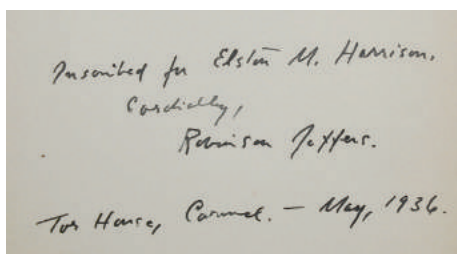 Inscribed for Elston M. Harrison.
Cordially,
Robinson Jeffers.
Tor House, Carmel. — May, 1936.